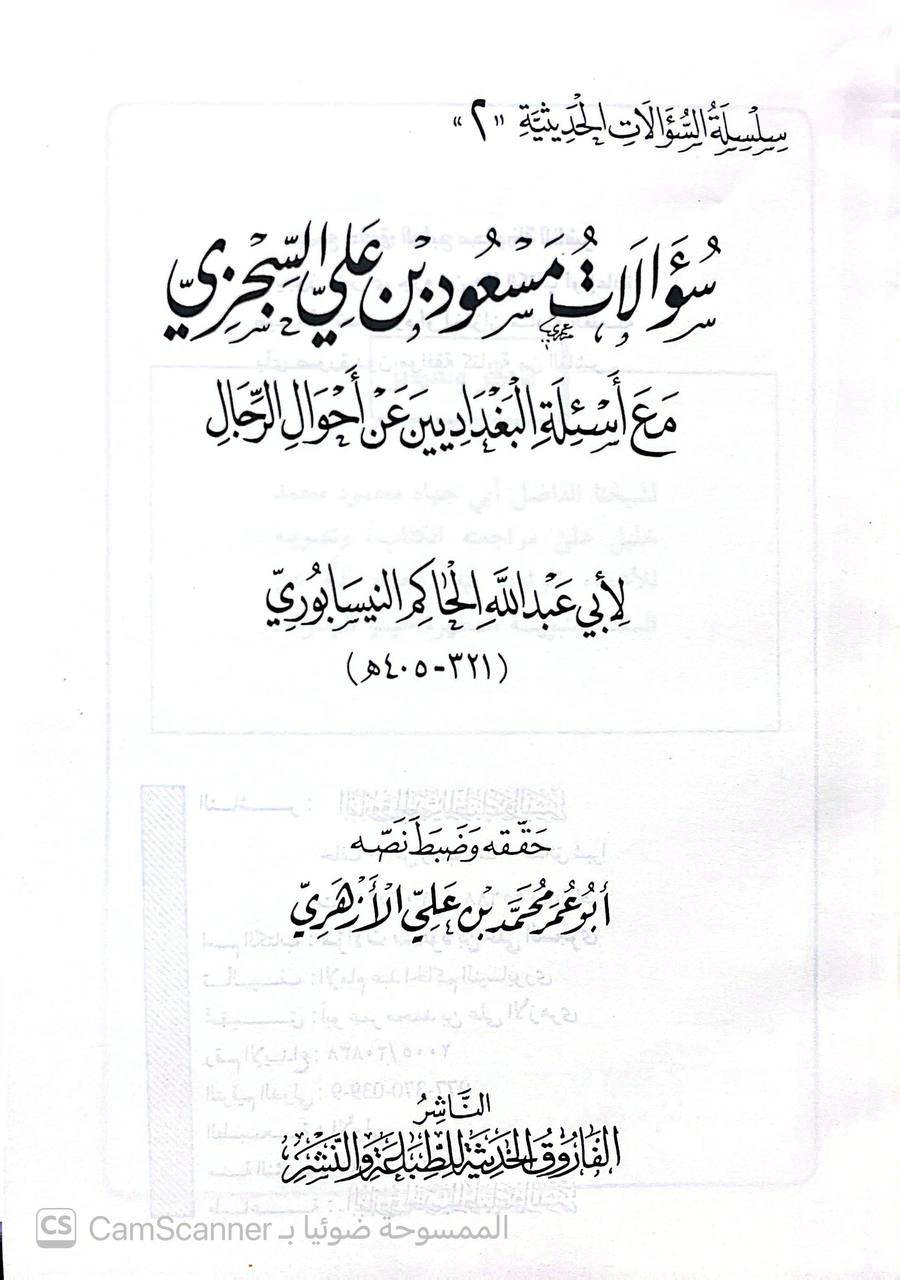 سِلْسِلَةُ السُّؤَالَاتِ الْحَدِيثِيَّةِ «٢»
سُؤَالَاتُ مَسْعُودِ بْنِ عَلِيٍّ السِّجْزِيِّ
مَعَ أَسْئِلَةِ الْبَغْدَادِيينَ عَنْ أَحْوَالِ الرِّجَالِ
لِأَبِي عَبْدِ اللَّهِ الْحَاكِمِ النَّيْسَابُورِيِّ
(٣٢١-٤٠٥هـ)
حَقَّقَهُ وَضَبَطَ نَصَّهُ
أَبُو عُمَرَ مُحَمَّدُ بْنُ عَلِيٍّ الْأَزْهَرِيُّ
النَّاشِرُ
الْفَارُوقُ الْحَدِيثَةُ لِلطِّبَاعَةِ وَالنَّشْرِ
CS CamScanner الممسوحة ضوئيا بـ